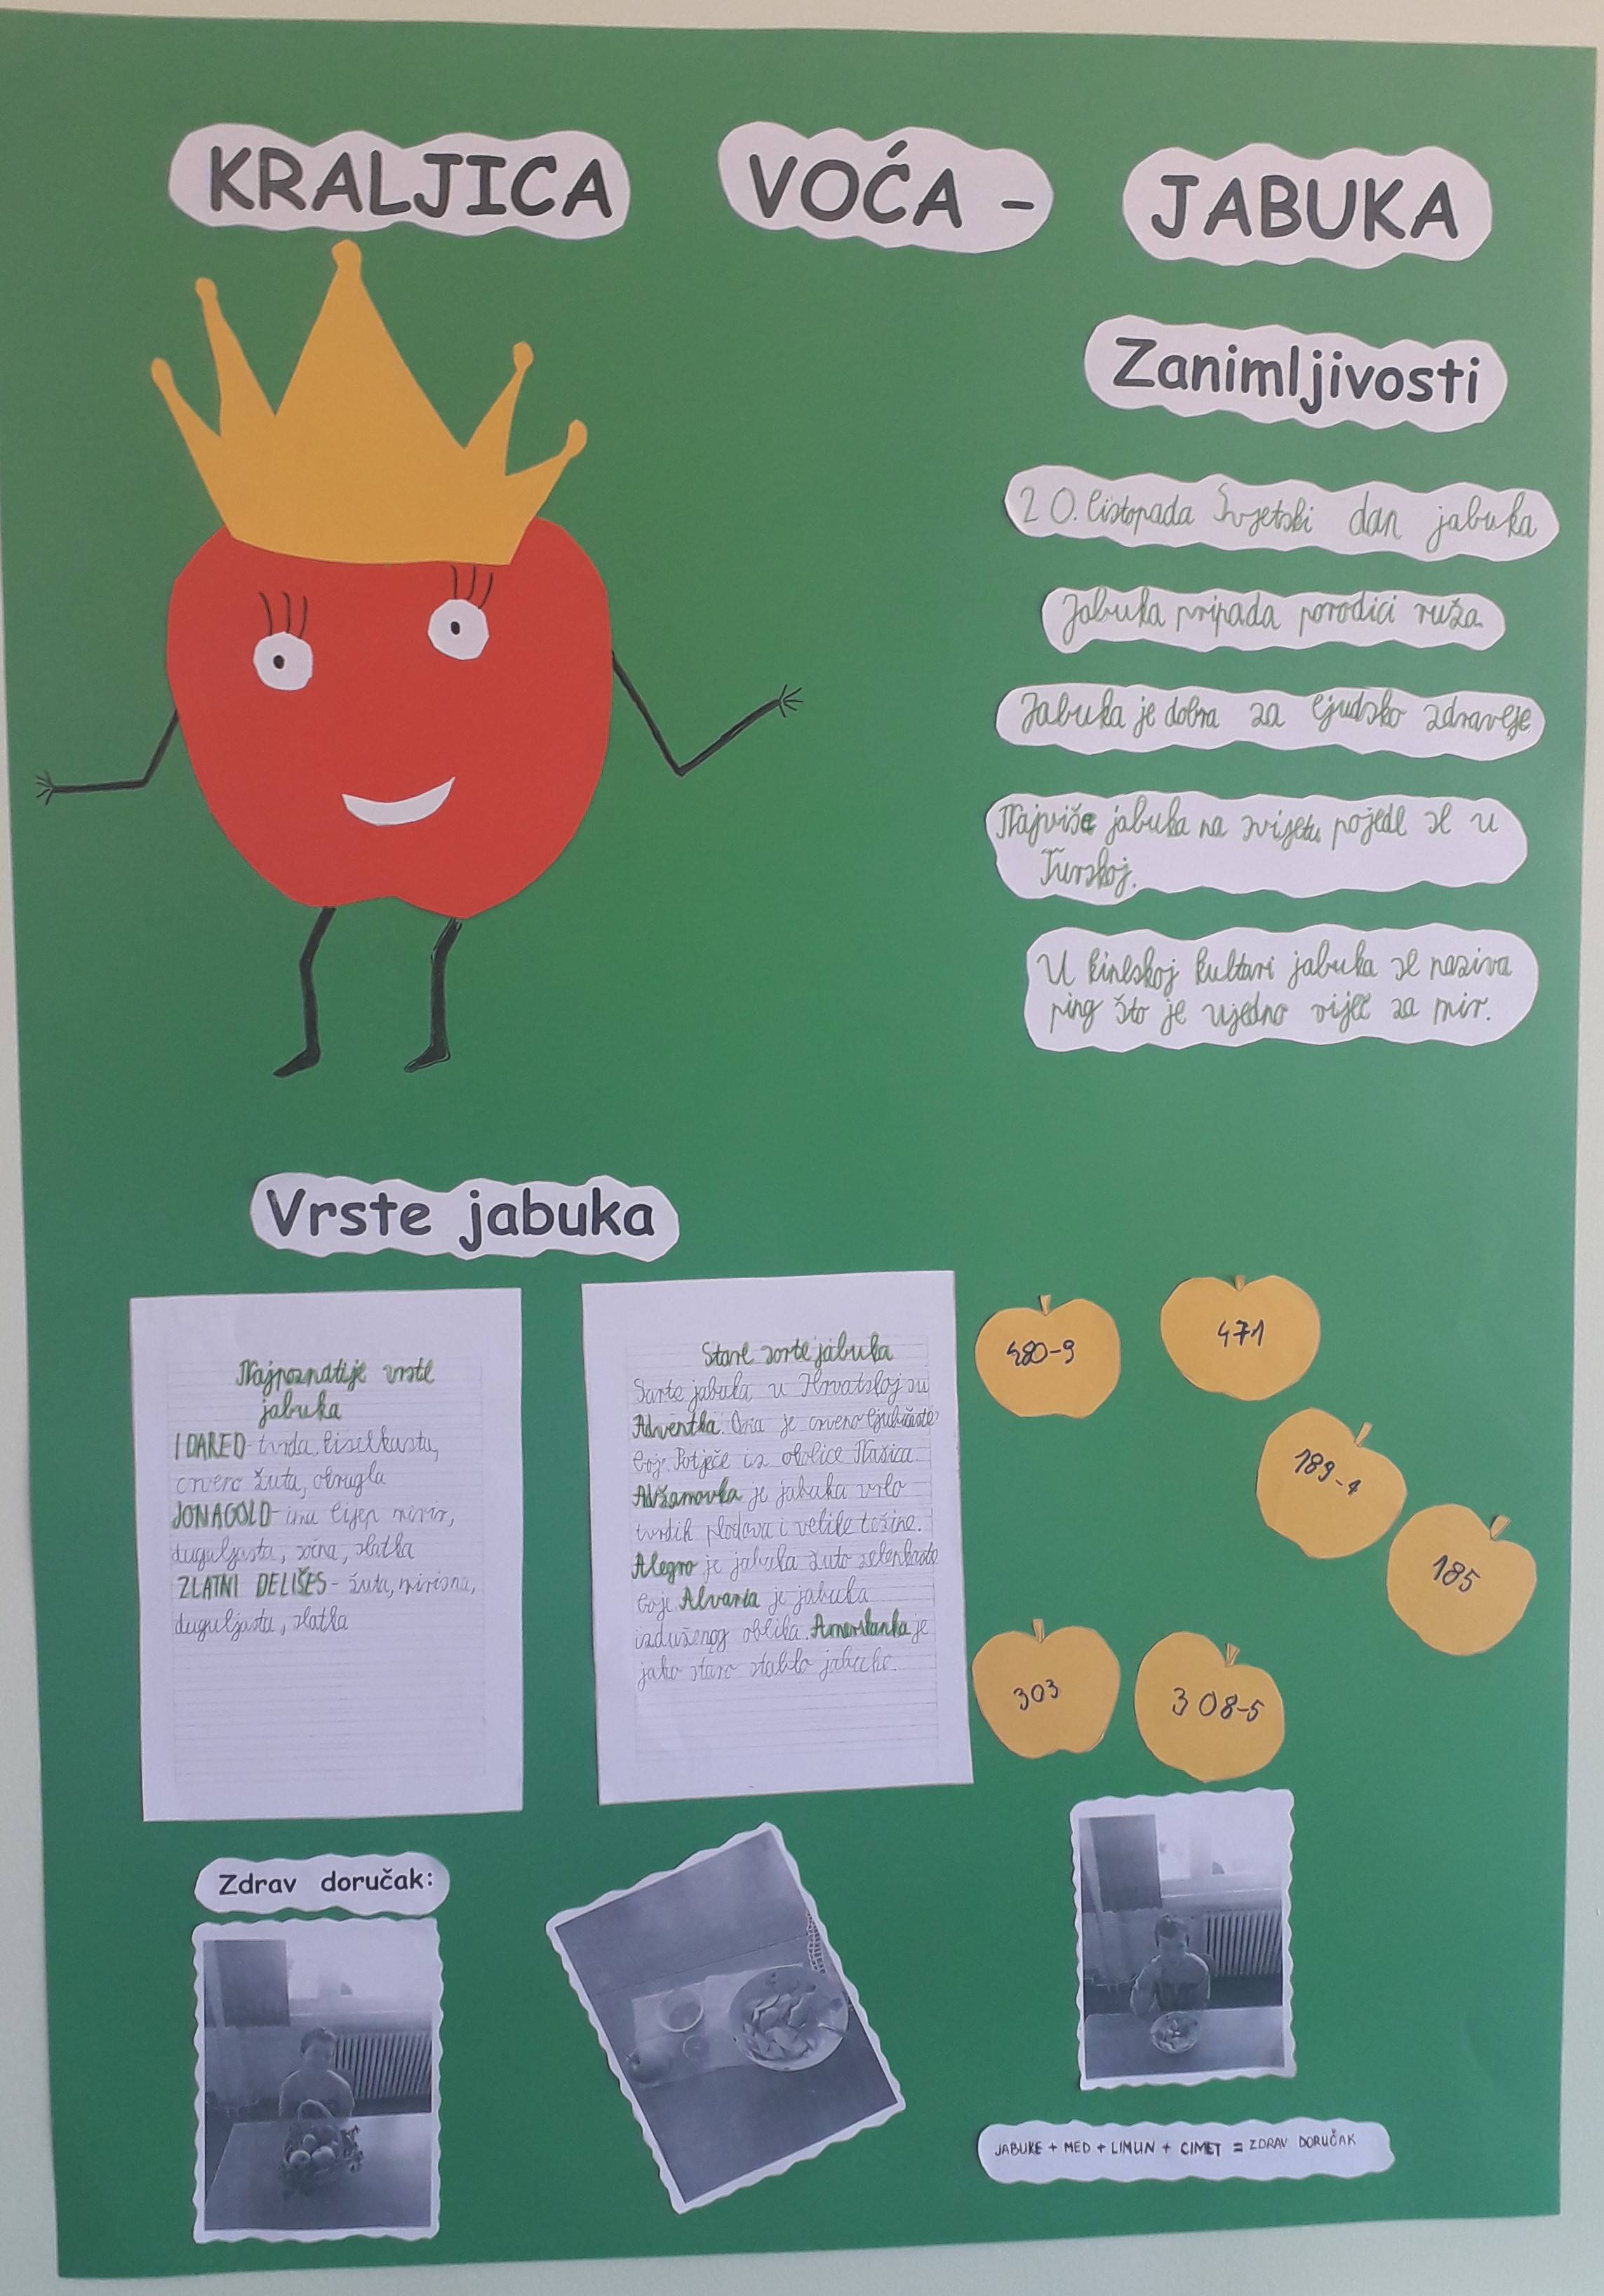 KRALJICA VOĆA - JABUKA
Zanimljivosti
20. listopada Svjetski dan jabuka
Jabuka pripada porodici ruža.
Jabuka je dobra za ljudsko zdravlje
Najviše jabuka na svijetu pojede se u
Turskoj.
U kineskoj kulturi jabuka se naziva
ping što je ujedno riječ za mir.
Vrste jabuka
Najpoznatije vrste
jabuka
IDARED - tvrda, kiselkasta,
crveno žuta, okrugla
JONAGOLD - ima lijep miris,
duguljasta, sočna, slatka
ZLATNI DELIŠES - žuta, mirisna,
duguljasta, slatka
Stare sorte jabuka
Sorte jabuka u Hrvatskoj su
Adventka. Ona je crveno ljubičaste
boje. Potječe iz okolice Našica.
Adžamovka je jabuka vrlo
tvrdih plodova i velike težine.
Alegro je jabuka žuto zelenkaste
boje. Alvania je jabuka
izduženog oblika. Amerikanka je
jako staro stablo jabuke.
480-9
471
189-4
185
303
308-5
Zdrav doručak:
JABUKE + MED + LIMUN + CIMET = ZDRAV DORUČAK